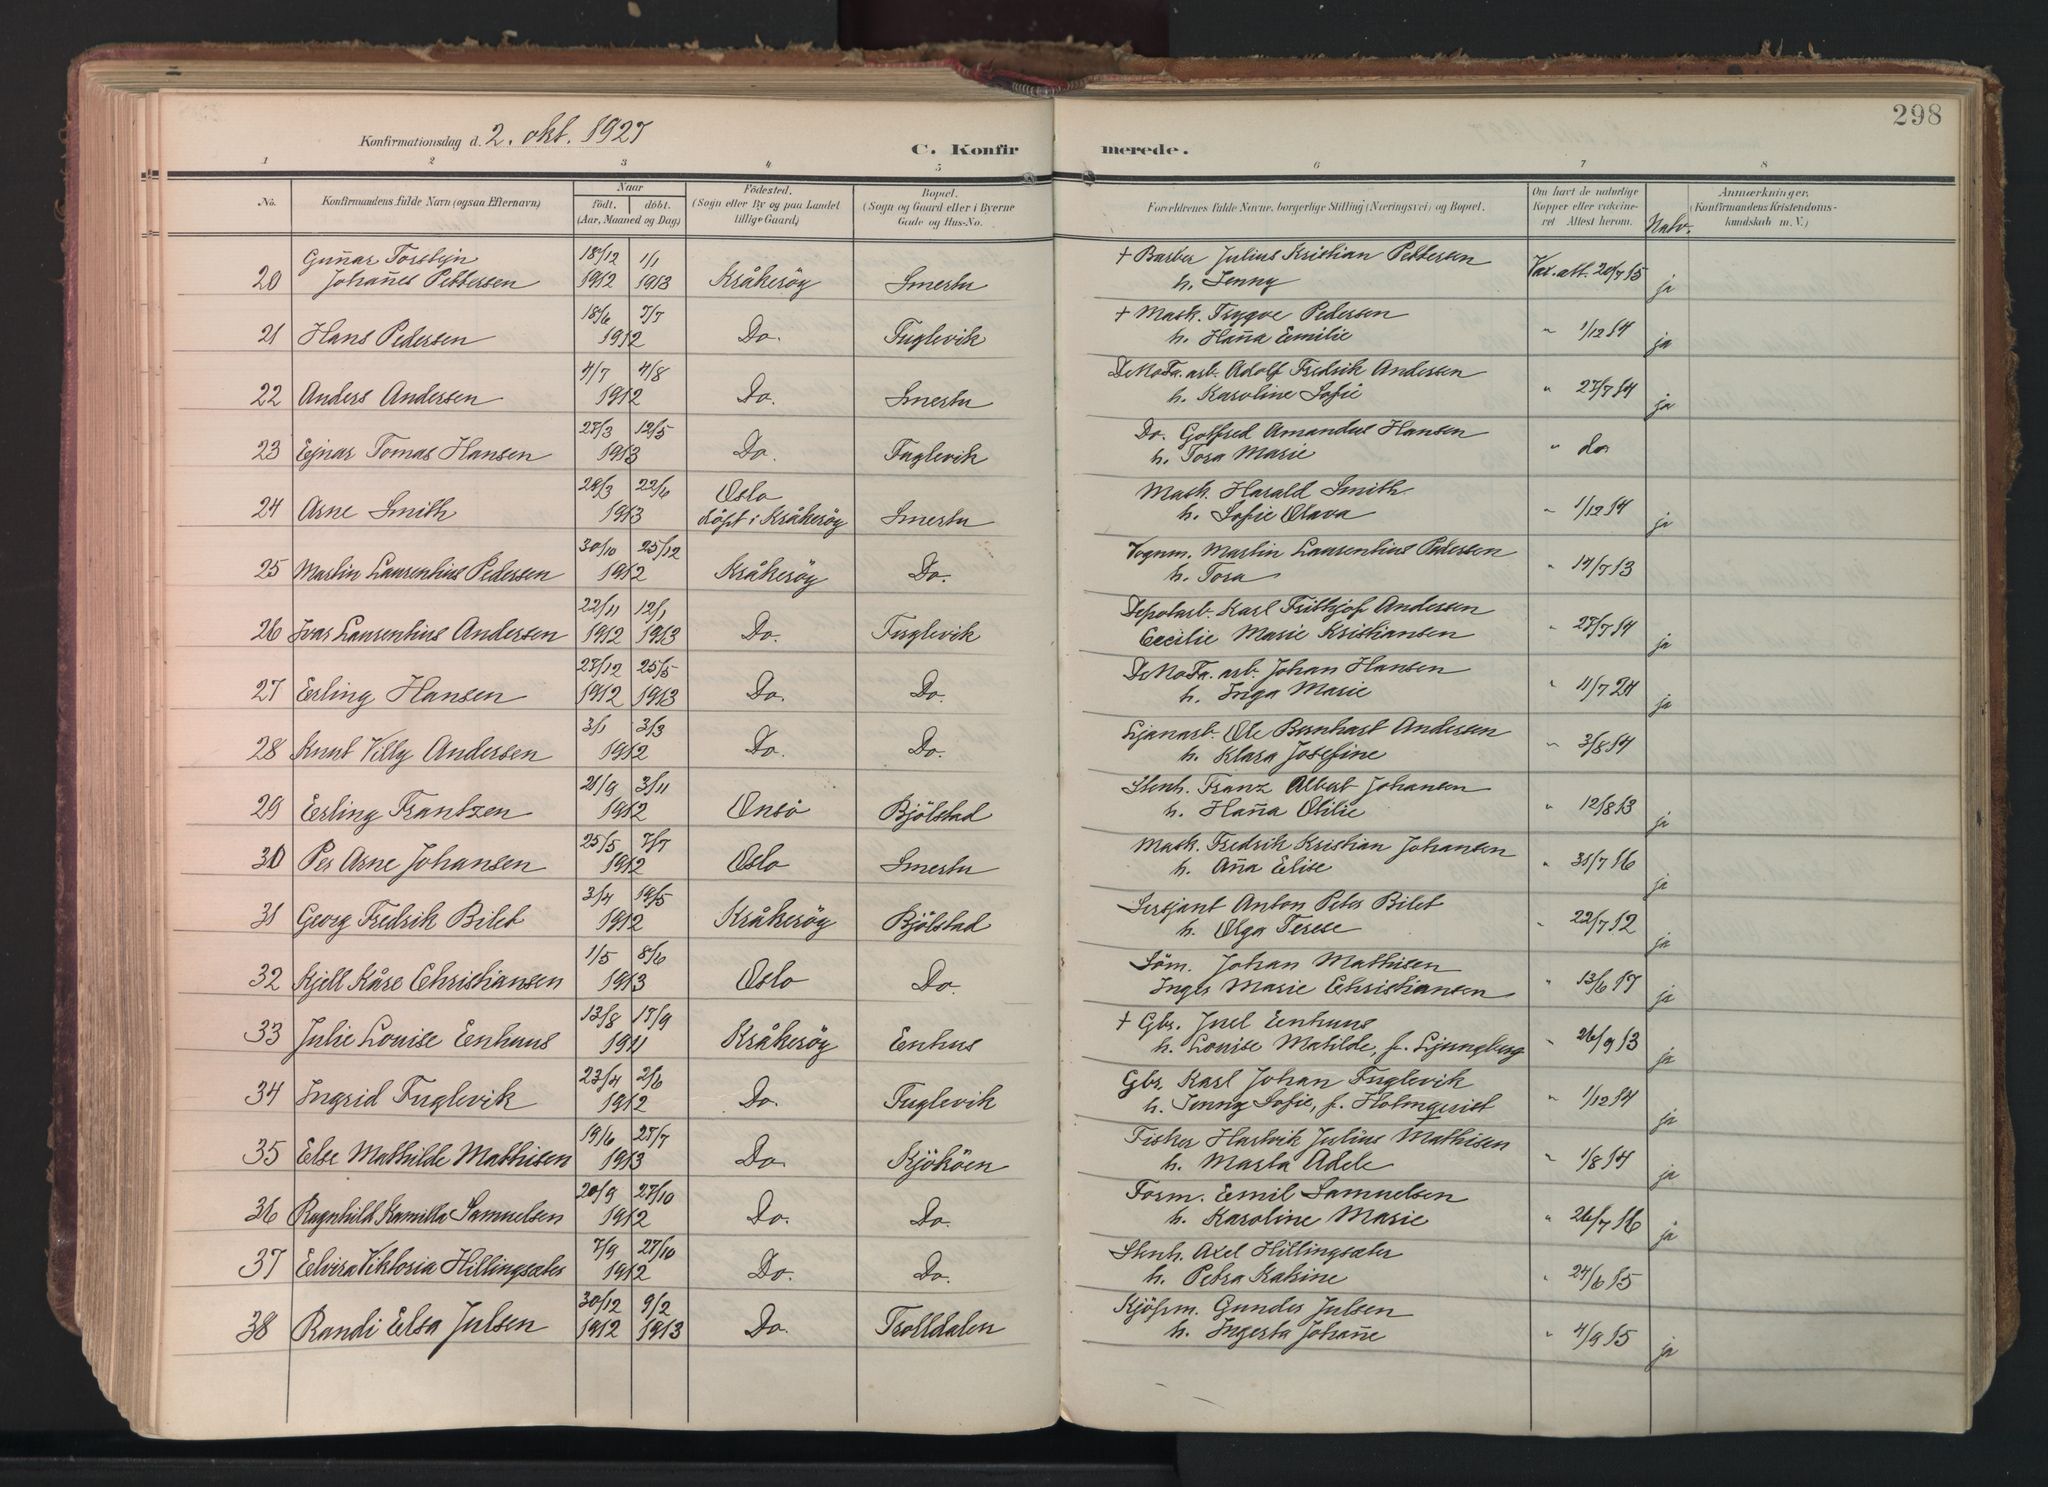 298
Konfirmationsdag d. 2. okt. 1927
C. Konfirmerede.
1 2 3 4 5 6 7 8
No. Konfirmandens fulde Navn (ogsaa Efternavn) Naar født. døbt. (Aar, Maaned og Dag) Fødested. (Sogn eller By og paa Landet tillige Gaard) Bopæl. (Sogn og Gaard eller i Byerne Gade og Hus-No. Forældrenes fulde Navne, borgerlige Stilling (Næringsvei) og Bopæl. Om havt de naturlige Kopper eller vaccineret Attest herom. Natv. Anmærkninger. (Konfirmandens Kristendomskundskab m. V.)
Gunnar Torstejn 18/12 1/1 + Barber Julius Kristian Pettersen
20 Johannes Pettersen 1912 1913 Kråkeröy Smertu h. Jenny Vax. att. 20/7 15 ja
18/6 7/7 + Mask. Trygve Pedersen
21 Hans Pedersen 1912 Do. Fuglevik h. Hanna Emilie " 1/12 14 ja
4/7 4/8 DeNoFa. arb. Adolf Fredrik Andersen
22 Anders Andersen 1912 Do. Smertu h. Karoline Sofie " 27/7 14 ja
27/3 12/5 Do. Golfred Amandus Hansen
23 Ejnar Tomas Hansen 1913 Do. Fuglevik h. Tora Marie " do
29/3 22/6 Oslo Mask. Harald Smith
24 Arne Smith 1913 döpt i Kråkeröy Smertu h. Sofie Olava " 1/12 14 ja
30/10 25/12 Vognm. Martin Laurentius Pedersen
25 Martin Laurentius Pedersen 1912 Kråkeröy Do. h. Tora " 14/7 13
22/11 12/1 Depotarb. Karl Frithjof Andersen
26 Ivar Laurentius Andersen 1912 1913 Do. Fuglevik Cecilie Marie Kristiansen " 27/7 14 ja
27/12 25/5 DeNoFa. arb. Johan Hansen
27 Erling Hansen 1912 1913 Do. Do. h. Inga Marie " 11/7 24 ja
3/1 3/3 Ljanarb. Ole Bernhart Andersen
28 Knut Villy Andersen 1912 Do. Do. h. Klara Josefine " 3/8 14 ja
21/9 3/11 Stenh. Franz Albert Johansen
29 Erling Frantzen 1912 Onsö Bjölstad h. Hanna Otilie " 12/8 13 ja
25/5 7/7 Mask. Fredrik Kristian Johansen
30 Per Arne Johansen 1912 Oslo Smertu h. Anna Elise " 31/7 16 ja
3/4 19/5 Sersjant Anton Peter Bilet
31 Georg Fredrik Bilet 1912 Kråkeröy Bjölstad h. Olga Terese " 22/7 12 ja
1/5 8/6 Söm. Johan Mathisen
32 Kjell Kåre Christiansen 1913 Oslo Do. Inger Marie Christiansen " 13/6 17 ja
13/8 17/9 + Gbr. Juel Enhuus
33 Julie Louise Enhuus 1911 Kråkeröy Enhus h. Louise Matilde, f. Ljungberg " 26/9 13 ja
23/4 2/6 Gbr. Karl Johan Fuglevik
34 Ingrid Fuglevik 1912 Do. Fuglevik h. Jenny Sofie, f. Holmqvist " 1/12 14 ja
19/6 27/7 Fisker Hartvik Julius Mathisen
35 Else Mathilde Mathisen 1913 Do. Kjököen h. Marta Adele " 1/8 14 ja
20/9 27/10 Form. Emil Samuelsen
36 Ragnhild Kamilla Samuelsen 1912 Do. Do. h. Karoline Marie " 26/7 16 ja
7/9 27/10 Stenh. Axel Hillingsæter
37 Elvira Viktoria Hillingsæter 1912 Do. Do. h. Petra Katrine " 24/6 15
30/12 9/2 Kjöpm. Gunder Julsen
38 Randi Elsa Julsen 1912 1913 Do. Trolldalen h. Ingerta Johanne " 4/9 15 ja